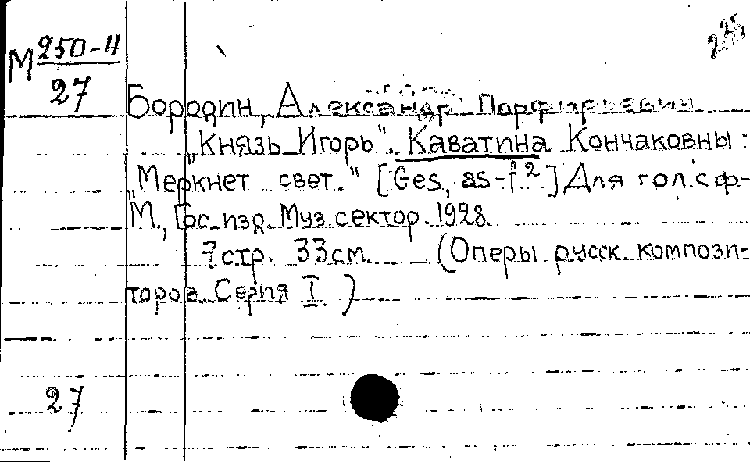 М 250-11
27
Бородин, Александр Порфирьевич
"Князь Игорь". Каватина Кончаковны:
"Меркнет свет." [Ges, as-f²] Для гол. с ф-
М., Гос. изд. Муз. сектор. 1928.
7 стр. 33 см. (Оперы русск. компози-
торов. Серия I )
27